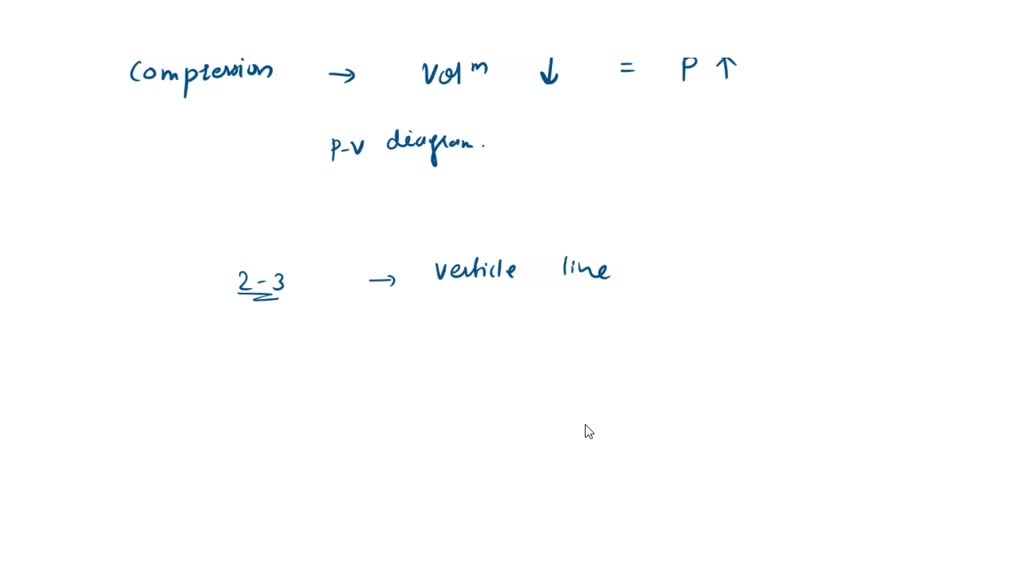 Compression → Volm ↓ = P ↑
P-V diagram.
2-3 → verticle line